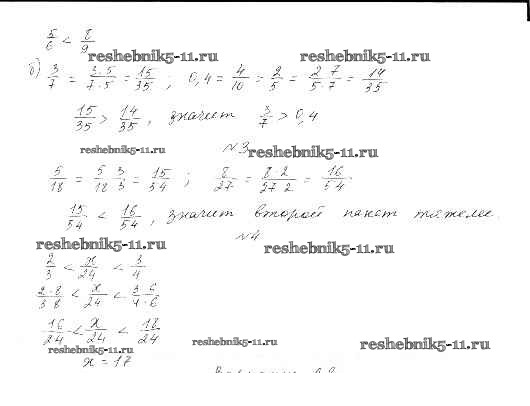 5/6 < 8/9
reshebnik5-11.ru reshebnik5-11.ru
б) 3/7 = 3·5/7·5 = 15/35 ; 0,4 = 4/10 = 2/5 = 2·7/5·7 = 14/35
15/35 > 14/35, значит 3/7 > 0,4
reshebnik5-11.ru №3 reshebnik5-11.ru
5/18 = 5·3/18·3 = 15/54 ; 8/27 = 8·2/27·2 = 16/54
15/54 < 16/54, значит второй пакет тяжелее.
reshebnik5-11.ru №4 reshebnik5-11.ru
2/3 < x/24 < 3/4
2·8/3·8 < x/24 < 3·6/4·6
16/24 < x/24 < 18/24
reshebnik5-11.ru reshebnik5-11.ru reshebnik5-11.ru
x = 17